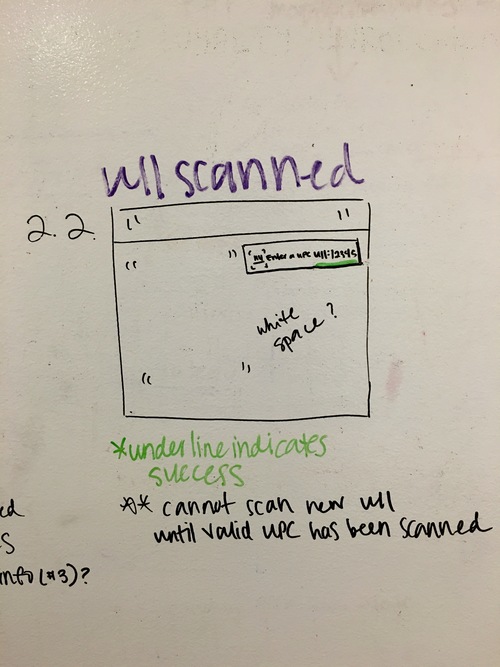 WII scanned
2.2.
" "
" " Enter a UPC WII:12345
white
space?
" "
*underline indicates
success
** cannot scan new WII
until valid UPC has been scanned
ed
s
info (#3)?